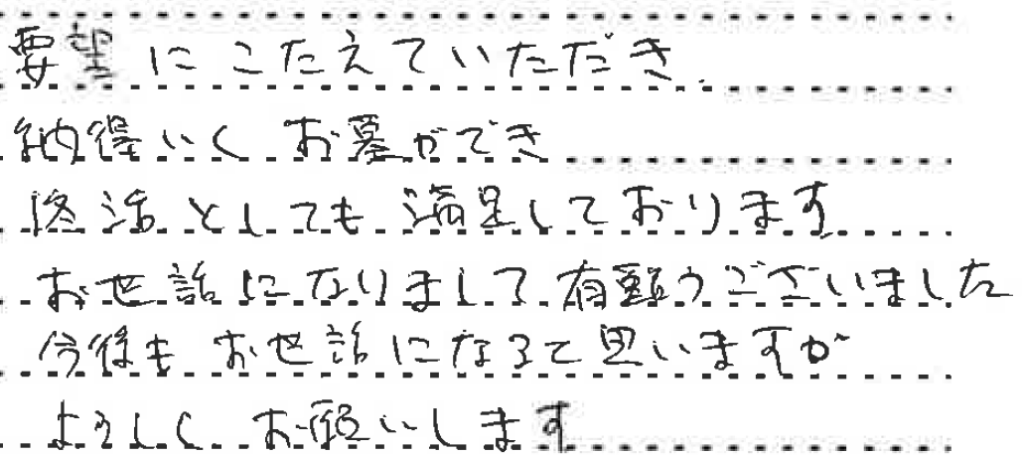 要望にこたえていただき、
納得いくお墓ができ
終活としても満足しております
お世話になりまして有難うございました
今後もお世話になると思いますが
よろしくお願いします